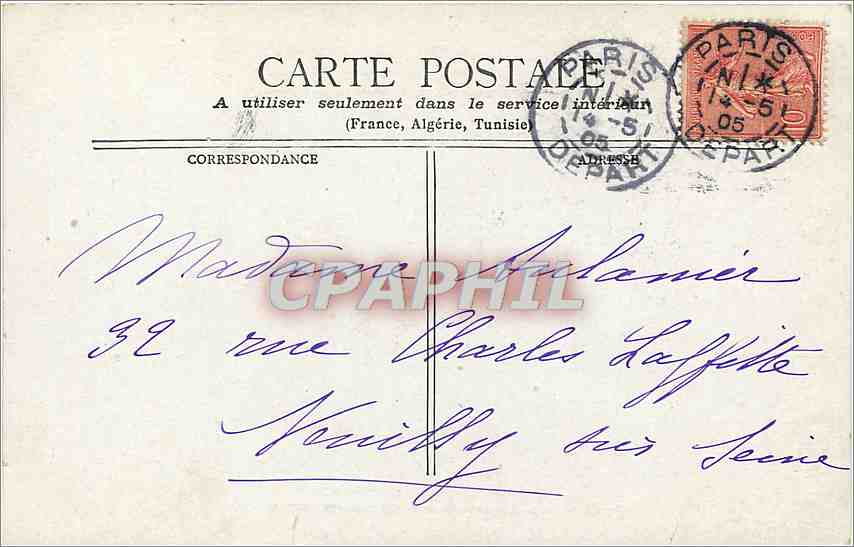 CARTE POSTALE
A utiliser seulement dans le service intérieur
(France, Algérie, Tunisie)
CORRESPONDANCE
ADRESSE
PARIS
14 -5
05
DEPART
PARIS
14 -5
05
DEPART
10
CPAPHIL
Madame Aulanier
32 rue Charles Laffitte
Neuilly sur Seine